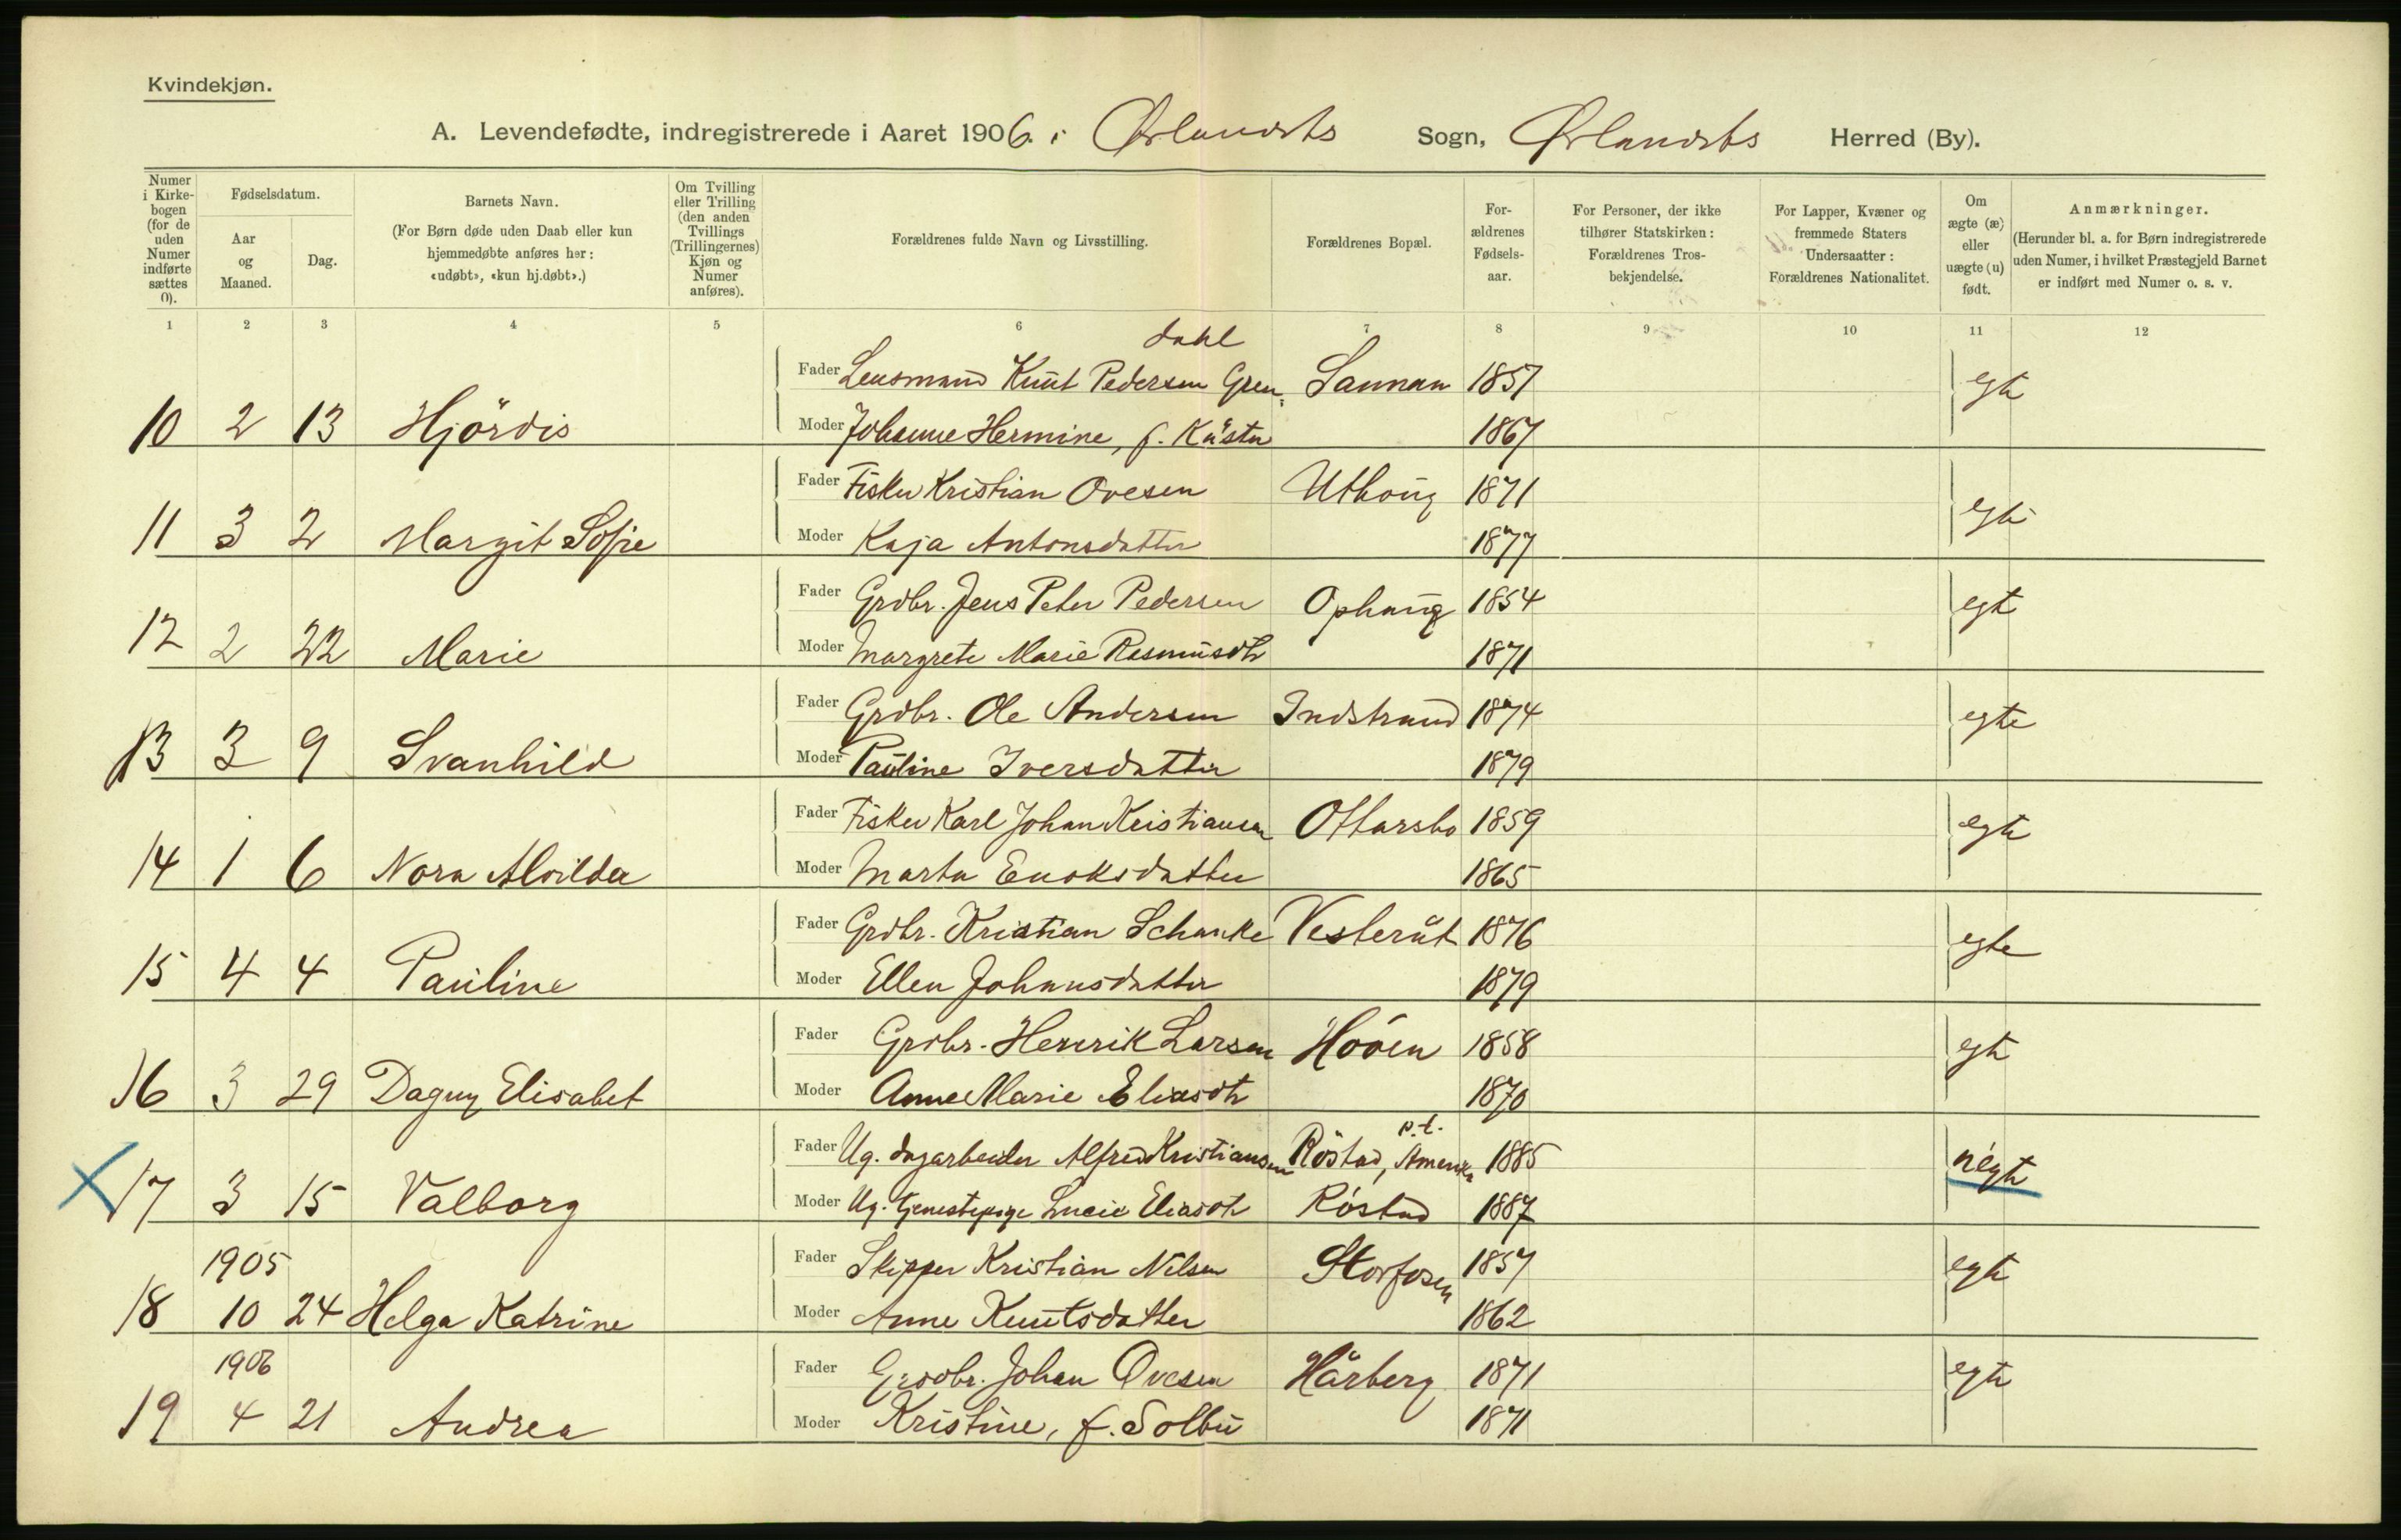 Kvindekjøn.
A. Levendefødte, indregistrerede i Aaret 1906. i Ørlandets Sogn, Ørlandets Herred (By).
Numer i Kirke-bogen (for de uden Numer indførte sættes 0).
Fødselsdatum.
Aar og Maaned.
Dag.
Barnets Navn.
(For Børn døde uden Daab eller kun hjemmedøbte anføres her: «udøbt», «kun hj.døbt».)
Om Tvilling eller Trilling (den anden Tvillings (Trillingernes) Kjøn og Numer anføres).
Forældrenes fulde Navn og Livsstilling.
Forældrenes Bopæl.
For-ældrenes Fødsels-aar.
For Personer, der ikke tilhører Statskirken: Forældrenes Tros-bekjendelse.
For Lapper, Kvæner og fremmede Staters Undersaatter: Forældrenes Nationalitet.
Om ægte (æ) eller uægte (u) født.
Anmærkninger.
(Herunder bl. a. for Børn indregistrerede uden Numer, i hvilket Præstegjeld Barnet er indført med Numer o. s. v.
1 2 3 4 5 6 7 8 9 10 11 12
dahl
Fader Lensmand Knut Pedersen Gren- 1857 egte
10 2 13 Hjördis Moder Johanne Hermine, f. 1867
Fader Fisker Kristian Ovesen Uthoug 1871 egte
11 3 2 Margit Sofie Moder Kaja Antonsdatter 1877
Fader Grdbr. Jens Peter Pedersen Ophaug 1854 egte
12 2 22 Marie Moder Margrete Marie Rasmusdtr 1871
Fader Grdbr. Ole Andersen Indstrand 1874 egte
13 3 9 Svanhild Moder Pauline Iversdatter 1879
Fader Fisker Karl Johan Kristiansen Ottarsbo 1859 egte
14 1 6 Nora Alvilda Moder Marta Enoksdatter 1865
Fader Grdbr. Kristian Schanke Vesteråt 1876 egte
15 4 4 Pauline Moder Ellen Johansdatter 1879
Fader Grdbr. Henrik Larsen Hoöen 1858 egte
16 3 29 Dagny Elisabet Moder Anne Marie Eliasdtr 1870
p.t.
Fader Ug. dagarbeider Alfred Kristiansen Röstad, Amerika 1885 uegte
17 3 15 Valborg Moder Ug. tjenestepige Lucie Eliasdtr Röstad 1887
1905 Fader Skipper Kristian Nilsen Storfosen 1857 egte
18 10 24 Helga Katrine Moder Anne Knutsdatter 1862
1906 Fader Grdbr. Johan Ovesen Hårberg 1871 egte
19 4 21 Andrea Moder Kristine, f. Solbu 1871